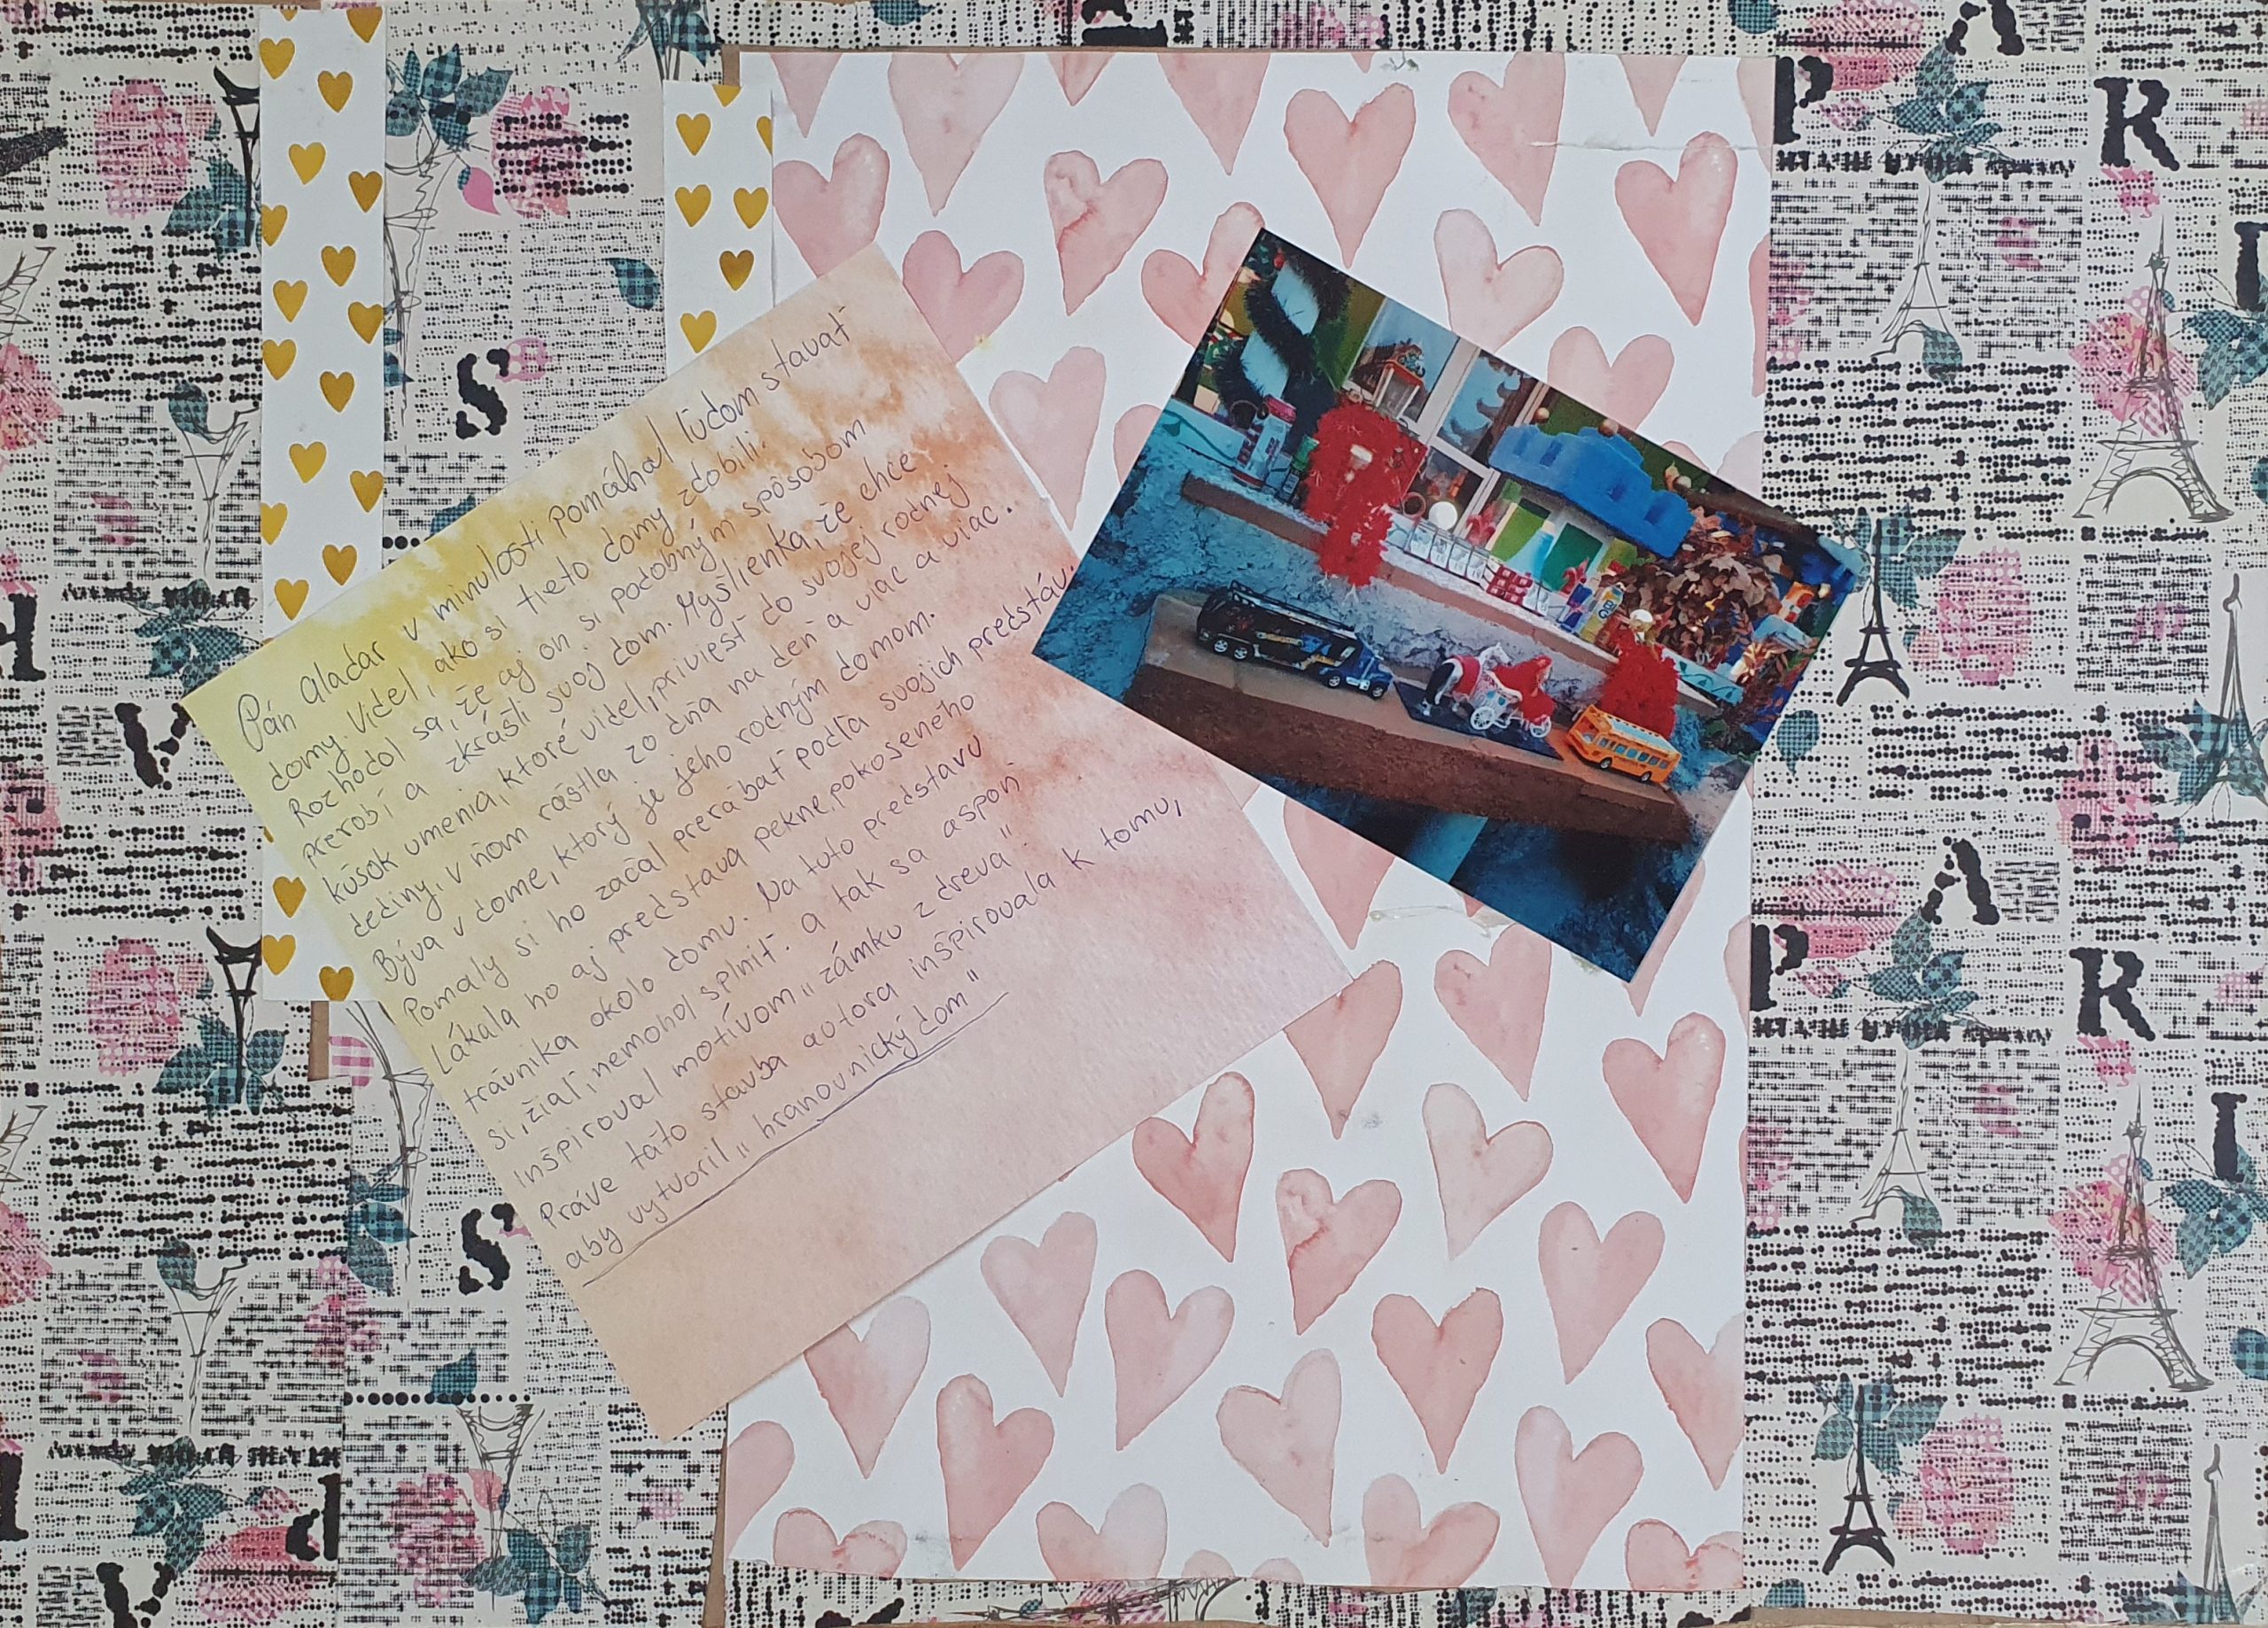 Pán Aladar v minulosti pomáhal ľuďom stavať
domy. Videl, ako si tieto domy zdobili.
Rozhodol sa, že aj on si podobným spôsobom
prerobí a zkrášli svoj dom. Myšlienka, že chce
kúsok umenia, ktoré videl, priviesť do svojej rodnej
dediny, v ňom rástla zo dňa na deň a viac a viac.
Býva v dome, ktorý je jeho rodným domom.
Pomaly si ho začal prerábať podľa svojich predstáv.
Lákala ho aj predstava pekne pokoseného
trávnika okolo domu. Na túto predstavu
si, žiaľ, nemohol splniť. A tak sa aspoň
inšpiroval motívom „zámku z dreva".
Práve táto stavba autora inšpirovala k tomu,
aby vytvoril „hranovnický dom"
P A R I S
P A R I S